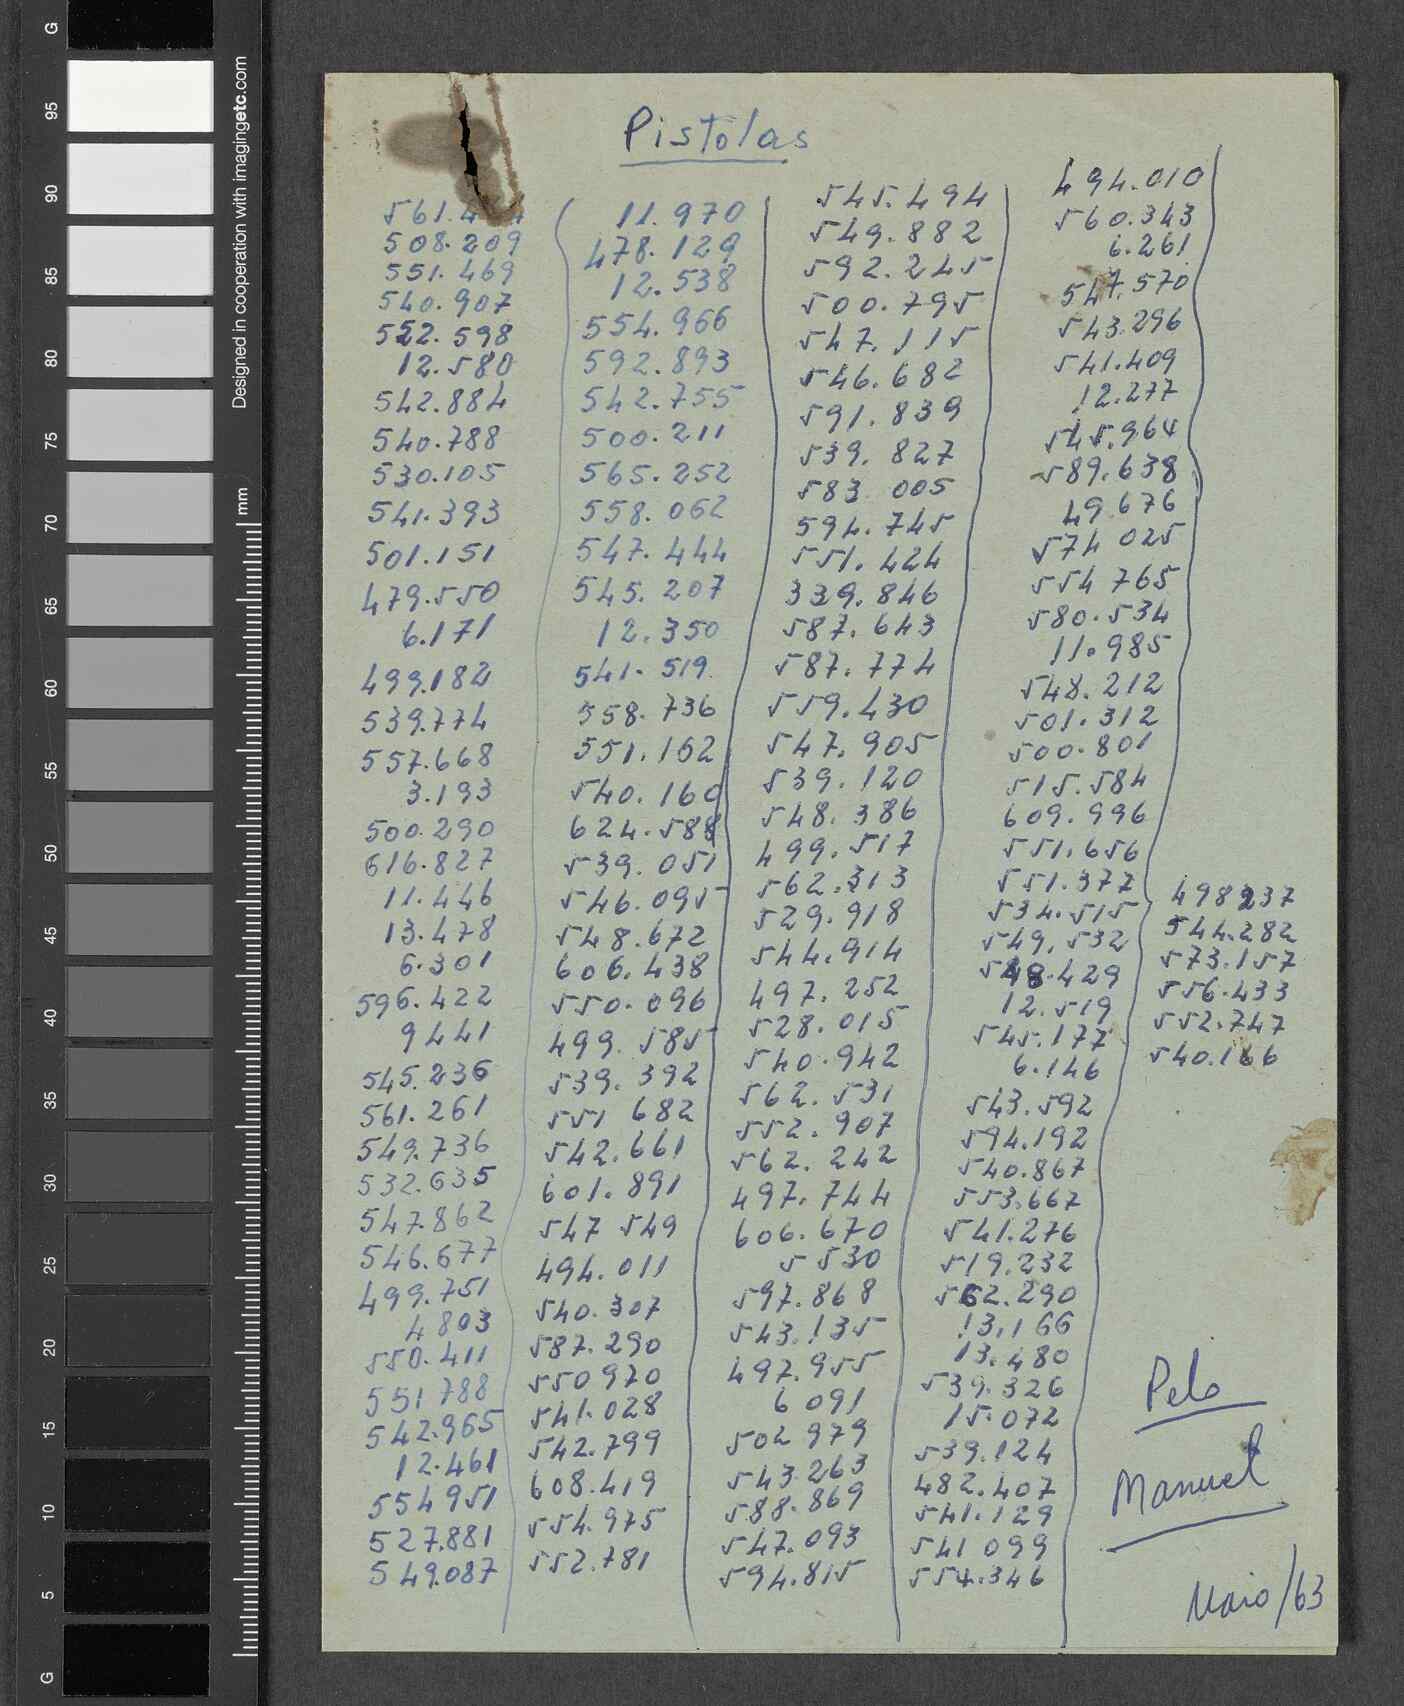 Pistolas
508.209
551.469
540.907
552.598
12.580
542.884
540.788
530.105
541.393
501.151
479.550
6.171
499.182
539.774
557.668
3.193
500.290
616.827
11.446
13.478
6.301
596.422
9441
545.236
561.261
549.736
532.635
547.862
546.677
499.751
4803
550.411
551788
542.965
12.461
554951
527.881
549.087
11.970
478.129
12.538
554.966
592.893
542.755
500.211
565.252
558.062
547.444
545.207
12.350
541.519
558.736
551.162
540.160
624.588
539.051
546.095
548.672
606.438
550.096
499.585
539.392
551 682
542.661
601.891
547 549
494.011
540.307
587.290
550970
541.028
542.799
608.419
554.975
552.781
545.494
549.882
592.245
500.795
547.115
546.682
591.839
539.827
583 005
594.745
551.424
339.846
587.643
587.774
559.430
547.905
539.120
548.386
499.517
562.313
529.918
544.914
497.252
528.015
540.942
562.531
552.907
562.242
497.744
606.670
5 530
597.868
543.135
497.955
6 091
502 979
543.263
588.869
547.093
594.815
494.010
560.343
6.261
547.570
543.296
541.409
12.277
545.964
589.638
49.676
574 025
554 765
580.534
11.985
548.212
501.312
500.801
515.584
609.996
551.656
551.377
534.515
549.532
548.429
12.519
545.177
6.146
543.592
594.192
540.867
553.667
541.276
519.232
562.290
13.166
13.480
539.326
15.072
539.124
482.407
541.129
541 099
554.346
498237
544.282
573.157
556.433
552.747
540.166
Pelo
Manuel
Maio/63
G
95
90
85
80
75
70
65
60
55
50
45
40
35
30
25
20
15
10
5
G
Designed in cooperation with imagingetc.com
mm